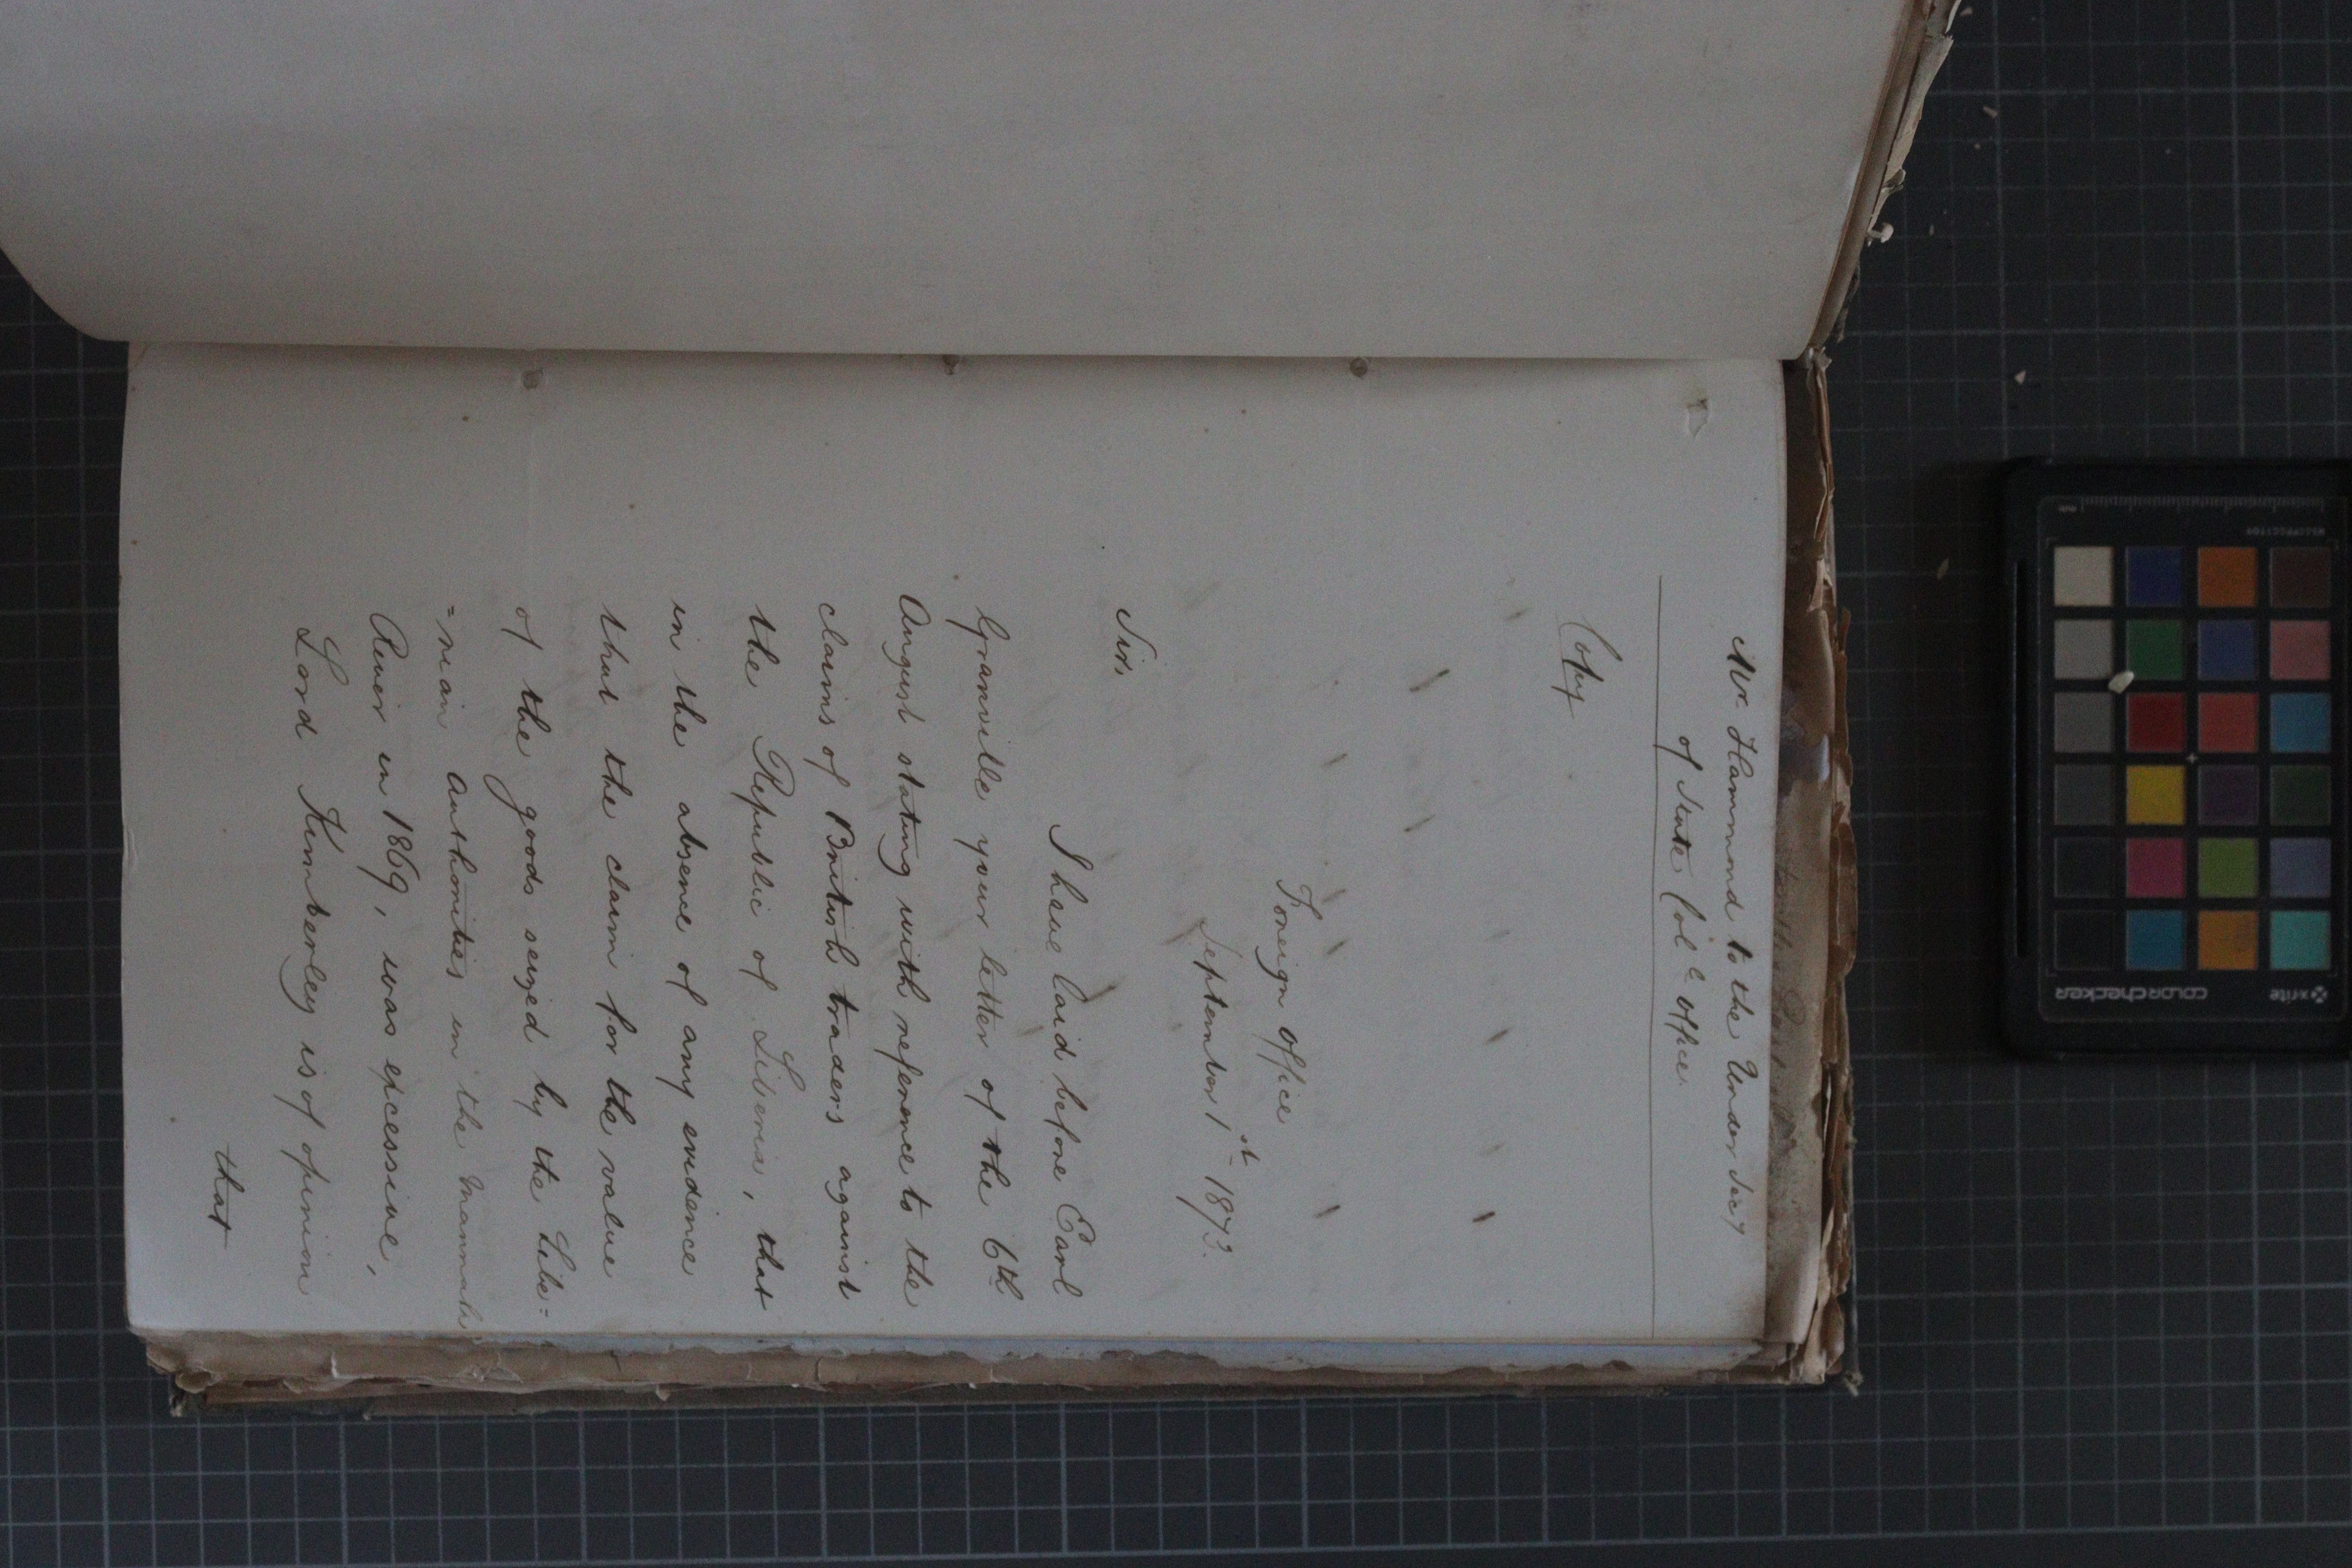 Mr. Hammond to the Under Secy
of State Col.l Office.
Copy
Foreign Office
September 1st 1873.
Sir,
I have laid before Earl
Granville your letter of the 6th
August stating with reference to the
claims of British traders against
the Republic of Liberia, that
in the absence of any evidence
that the claim for the value
of the goods seized by the Libe=
=rian Authorities in the Mannah
River in 1869, was excessive,
Lord Kimberley is of opinion
that
x-rite
colorchecker
mm